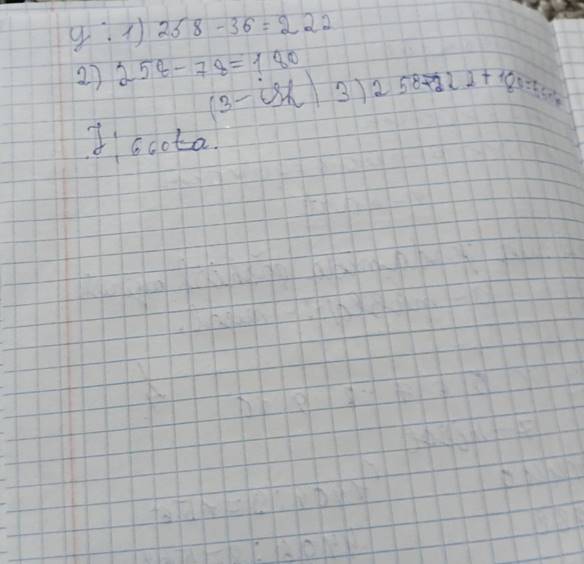 y: 1) 258 - 36 = 222
2) 258 - 78 = 180
(3-ish) 3) 258+222+180=660ta
J: 660ta.